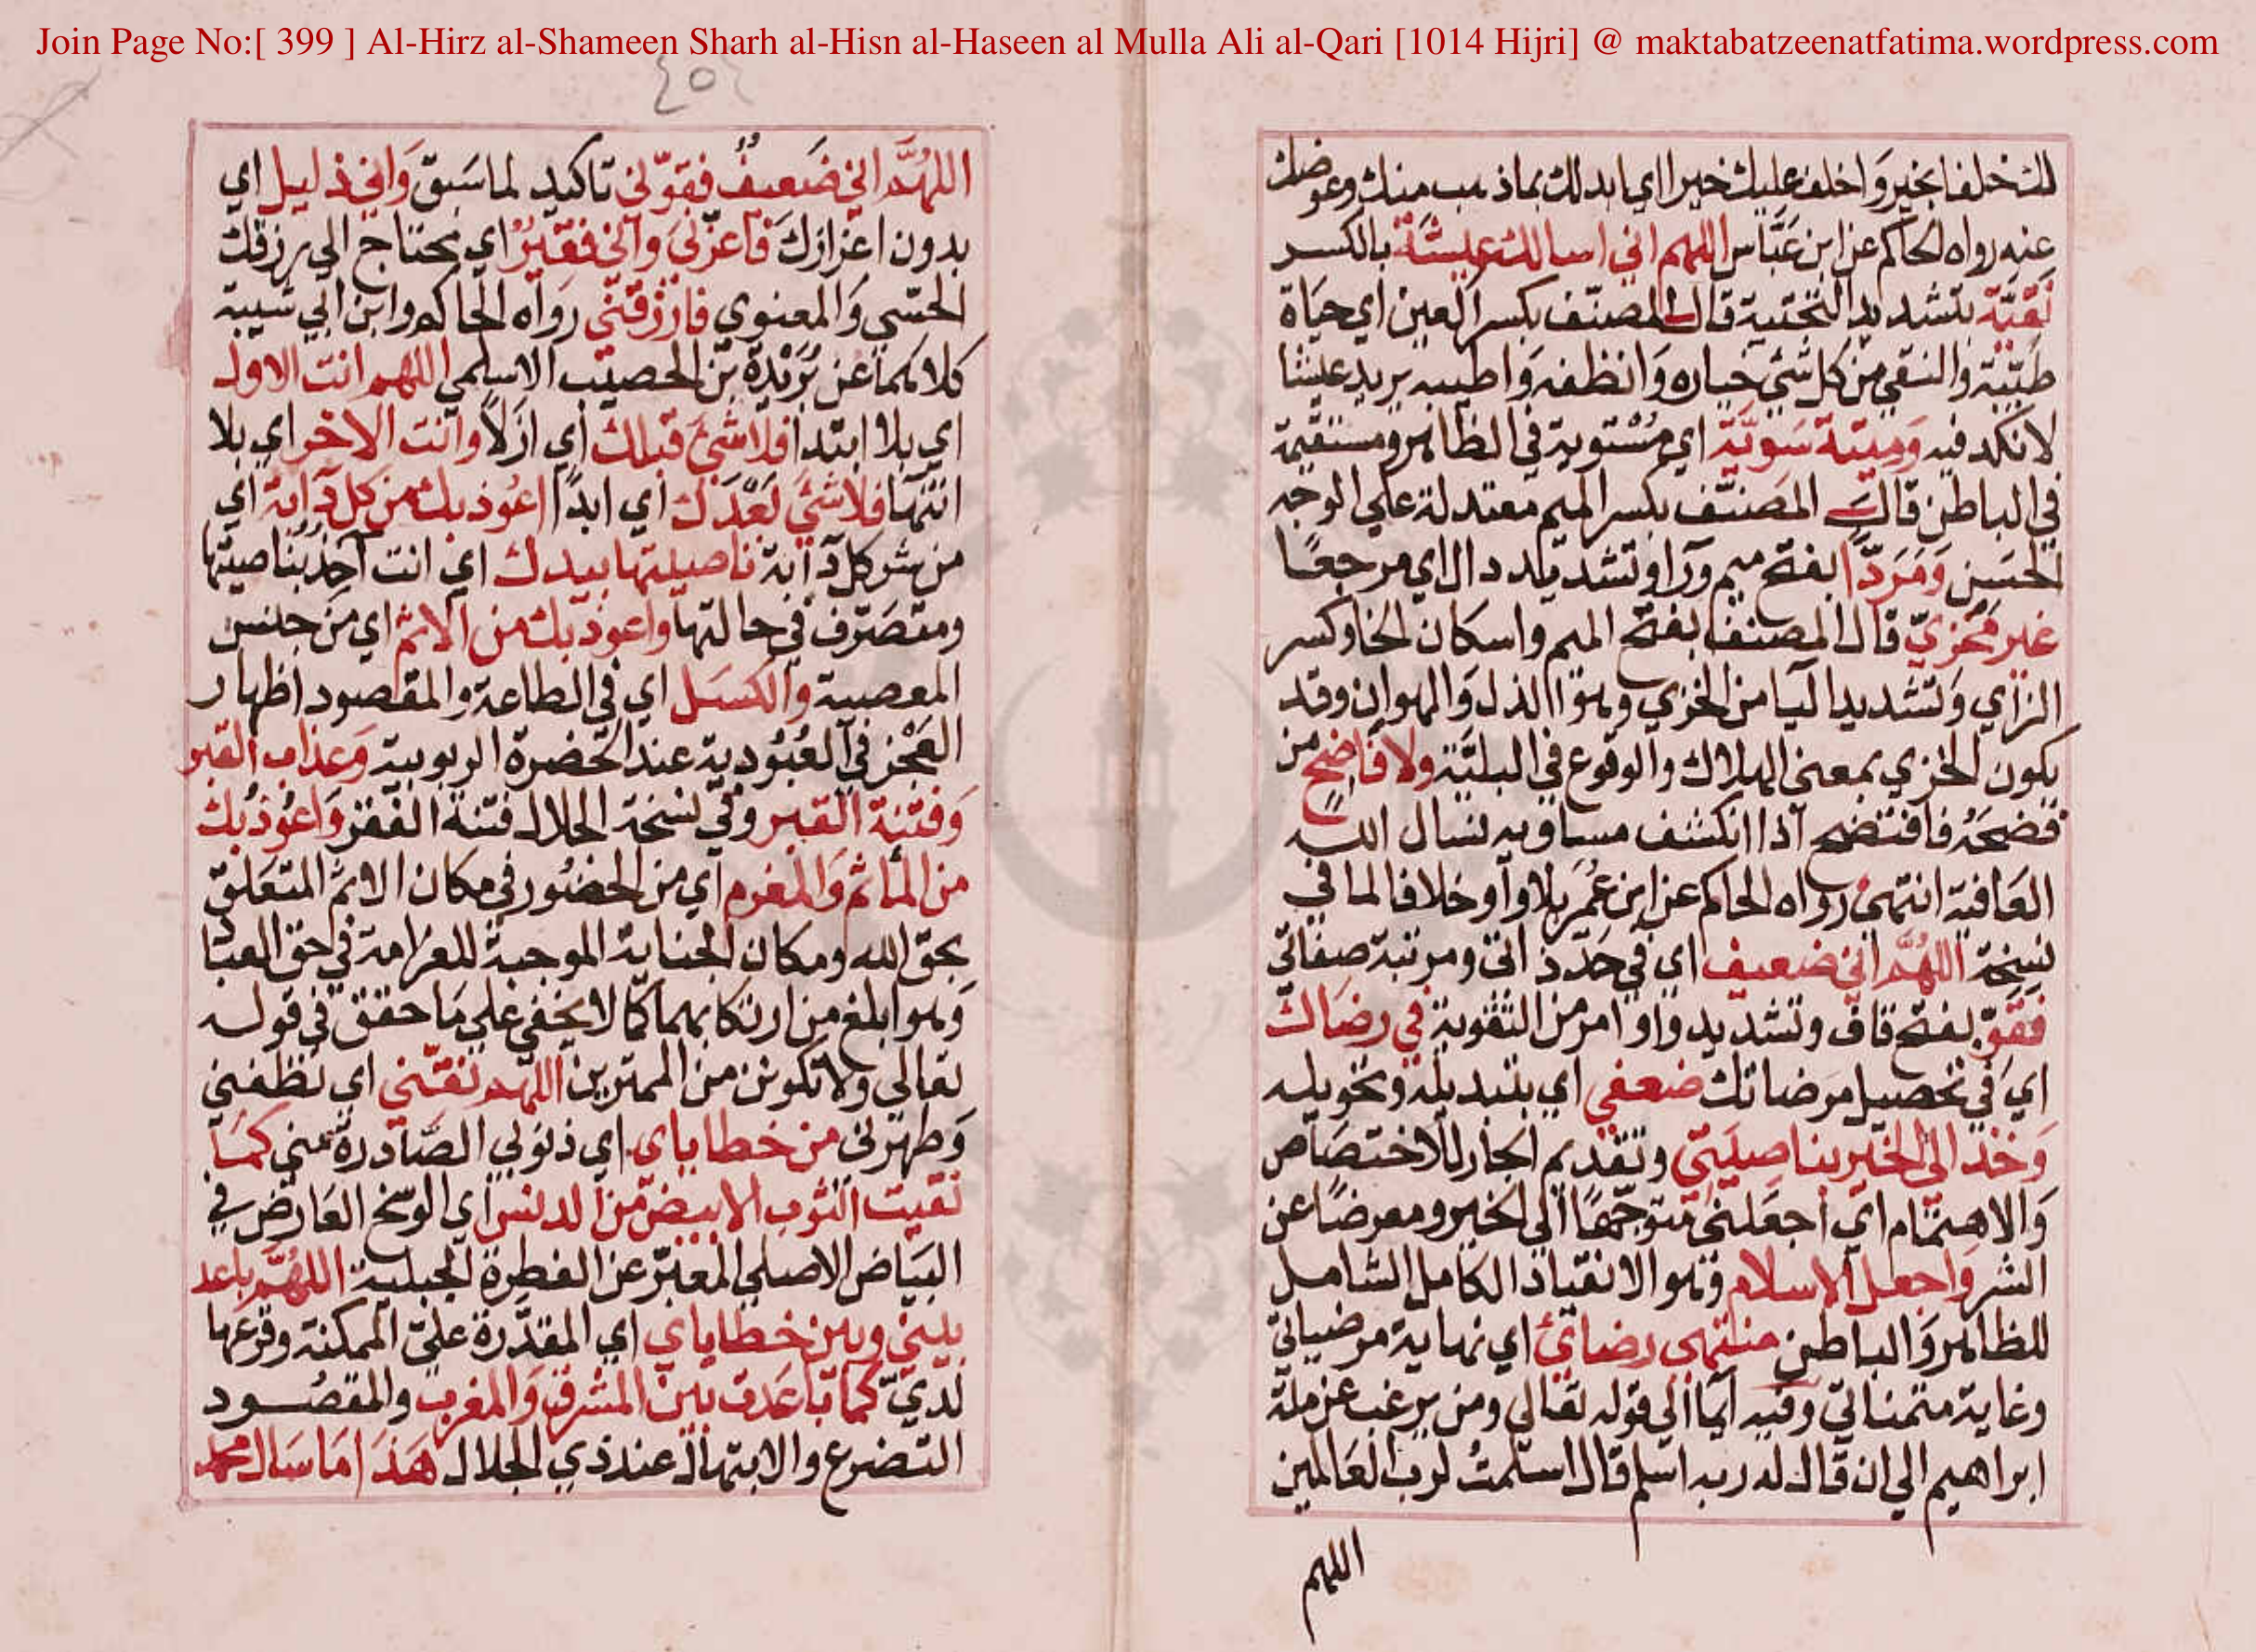 Join Page No:[ 399 ] Al-Hirz al-Shameen Sharh al-Hisn al-Haseen al Mulla Ali al-Qari [1014 Hijri] @ maktabatzeenatfatima.wordpress.com
لك خلفا بخير واخلف عليك خيرا اي ابدلك بماذهب منك وعوضك
عنه رواه الحاكم عن ابن عَبَّاس اللهم اني اسالك عيشَةً بالكسر
نَقيَّة بتشديد التحتية قال المصنّف بكسر العين اي حيَاة
طيّبة والنقي من كل شئ خياره وَانظفه وَاطيبه يريد عيشا
لا نكد فيه وَميتة سَويَّة اي مُسْتوية في الظاهر ومستقيمة
في الباطن قال المصَنّف بكسر الميم معتدلة علي الوجه
الحَسن وَمَرَدًّا بفتح ميم ورا وتشديد دال اي مرجعًا
غير مُخزيّ قال المصنف بفتح الميم واسكان الخا وكسر
الزاي وَتشديد اليا من الخزي وهوَ الذل وَالهوان وقد
يكون الخزي بمعني الهلاك والوقوع في البليَّة ولا فَاضحٍ من
فضحَهُ فافتضح اذا انكشف مساويه نسال الله
العَافية انتهي رواه الحاكم عن ابن عُمَر بلا واو خلافا لما في
نسخة اللهُمَّ اني ضعيف اي في حَدّ ذاتي ومرتبة صفاتي
فقَوِّ بفتح قاف وتشديد واو امر من التقوية في رضَاك
اي في تحصيل مرضاتك ضعفي اي بتبديله وتحويله
وَخذ الي الخير بناصيَتي وتقديم الجار للاختصَاص
وَالاهتمَام اي اجعَلني متوجّهًا الي الخير ومعرضًا عن
الشر وَاجعل الاسلام وهو الانقياد الكامل الشامل
للظاهر وَالباطن منتهي رضايَ اي نهاية مرضياتي
وغاية متمنياتي وفيه ايمَا الي قوله تعالي ومن يرغب عن ملة
ابراهيم الي ان قال له ربه اسلم قال اسلمتُ لرب العَالمين
اللهم
اللهُمَّ اني ضَعيفٌ فقوّني تاكيد لما سَبَق وَاني ذليل اي
بدون اعزازكَ فاعزّني وَاني فقيرٌ اي محتاج الي رزقك
الحسّي وَالمعنوي فارْزقني رواه الحاكم وابن ابي شيبة
كلاهما عن بُرَيْدَة بن الحصيب الاسلمي اللهم انت الاول
اي بلا ابتدا فلا شئ قبلك اي ازلاً وانت الاخر اي بلا
انتهَا فلا شئ بَعْدَك اي ابدًا اعُوذ بك من كل دآبة اي
من شر كل دآبة ناصيتها بيدك اي انت آخِذٌ بناصيتها
ومتصَرّف في حالتها واعوذ بك من الاثم اي من جنس
المعصية والكسَل اي في الطاعة والمقصود اظهار
العَجْز في العُبُودية عند الحَضرة الربوبية وَعذاب القبر
وَفتنة القبر وفي نسخة الجلال فتنة الفقر وَاعوُذ بك
من المأثم وَالمغرم اي من الحضُور في مكان الاثم المتعَلق
بحق الله ومكان الجناية الموجبة للغرَامة في حق العبَا
وَهو ابلغ من ارتكابهما كما لا يخفي علي مَا حقق في قوله
تعالي ولا تكونن من الممترين اللهم نقّني اي نَظّفني
وَطهّرني من خطاياي اي ذنوبي الصَّادرة مني كمَا
نقيت الثوب الابيض من الدنس اي الوسَخ العَارض في
البيَاض الاصلي المعبّر عن الفطرة الجبلية اللهُمَّ باعد
بيني وبين خطاياي اي المقدّرة عليّ الممكنة وقوعها
لديّ كما بَاعَدت بين المشرق وَالمغرب والمقصُود
التضرع والابتهال عند ذي الجلال هَذَا مَا سَال محمد